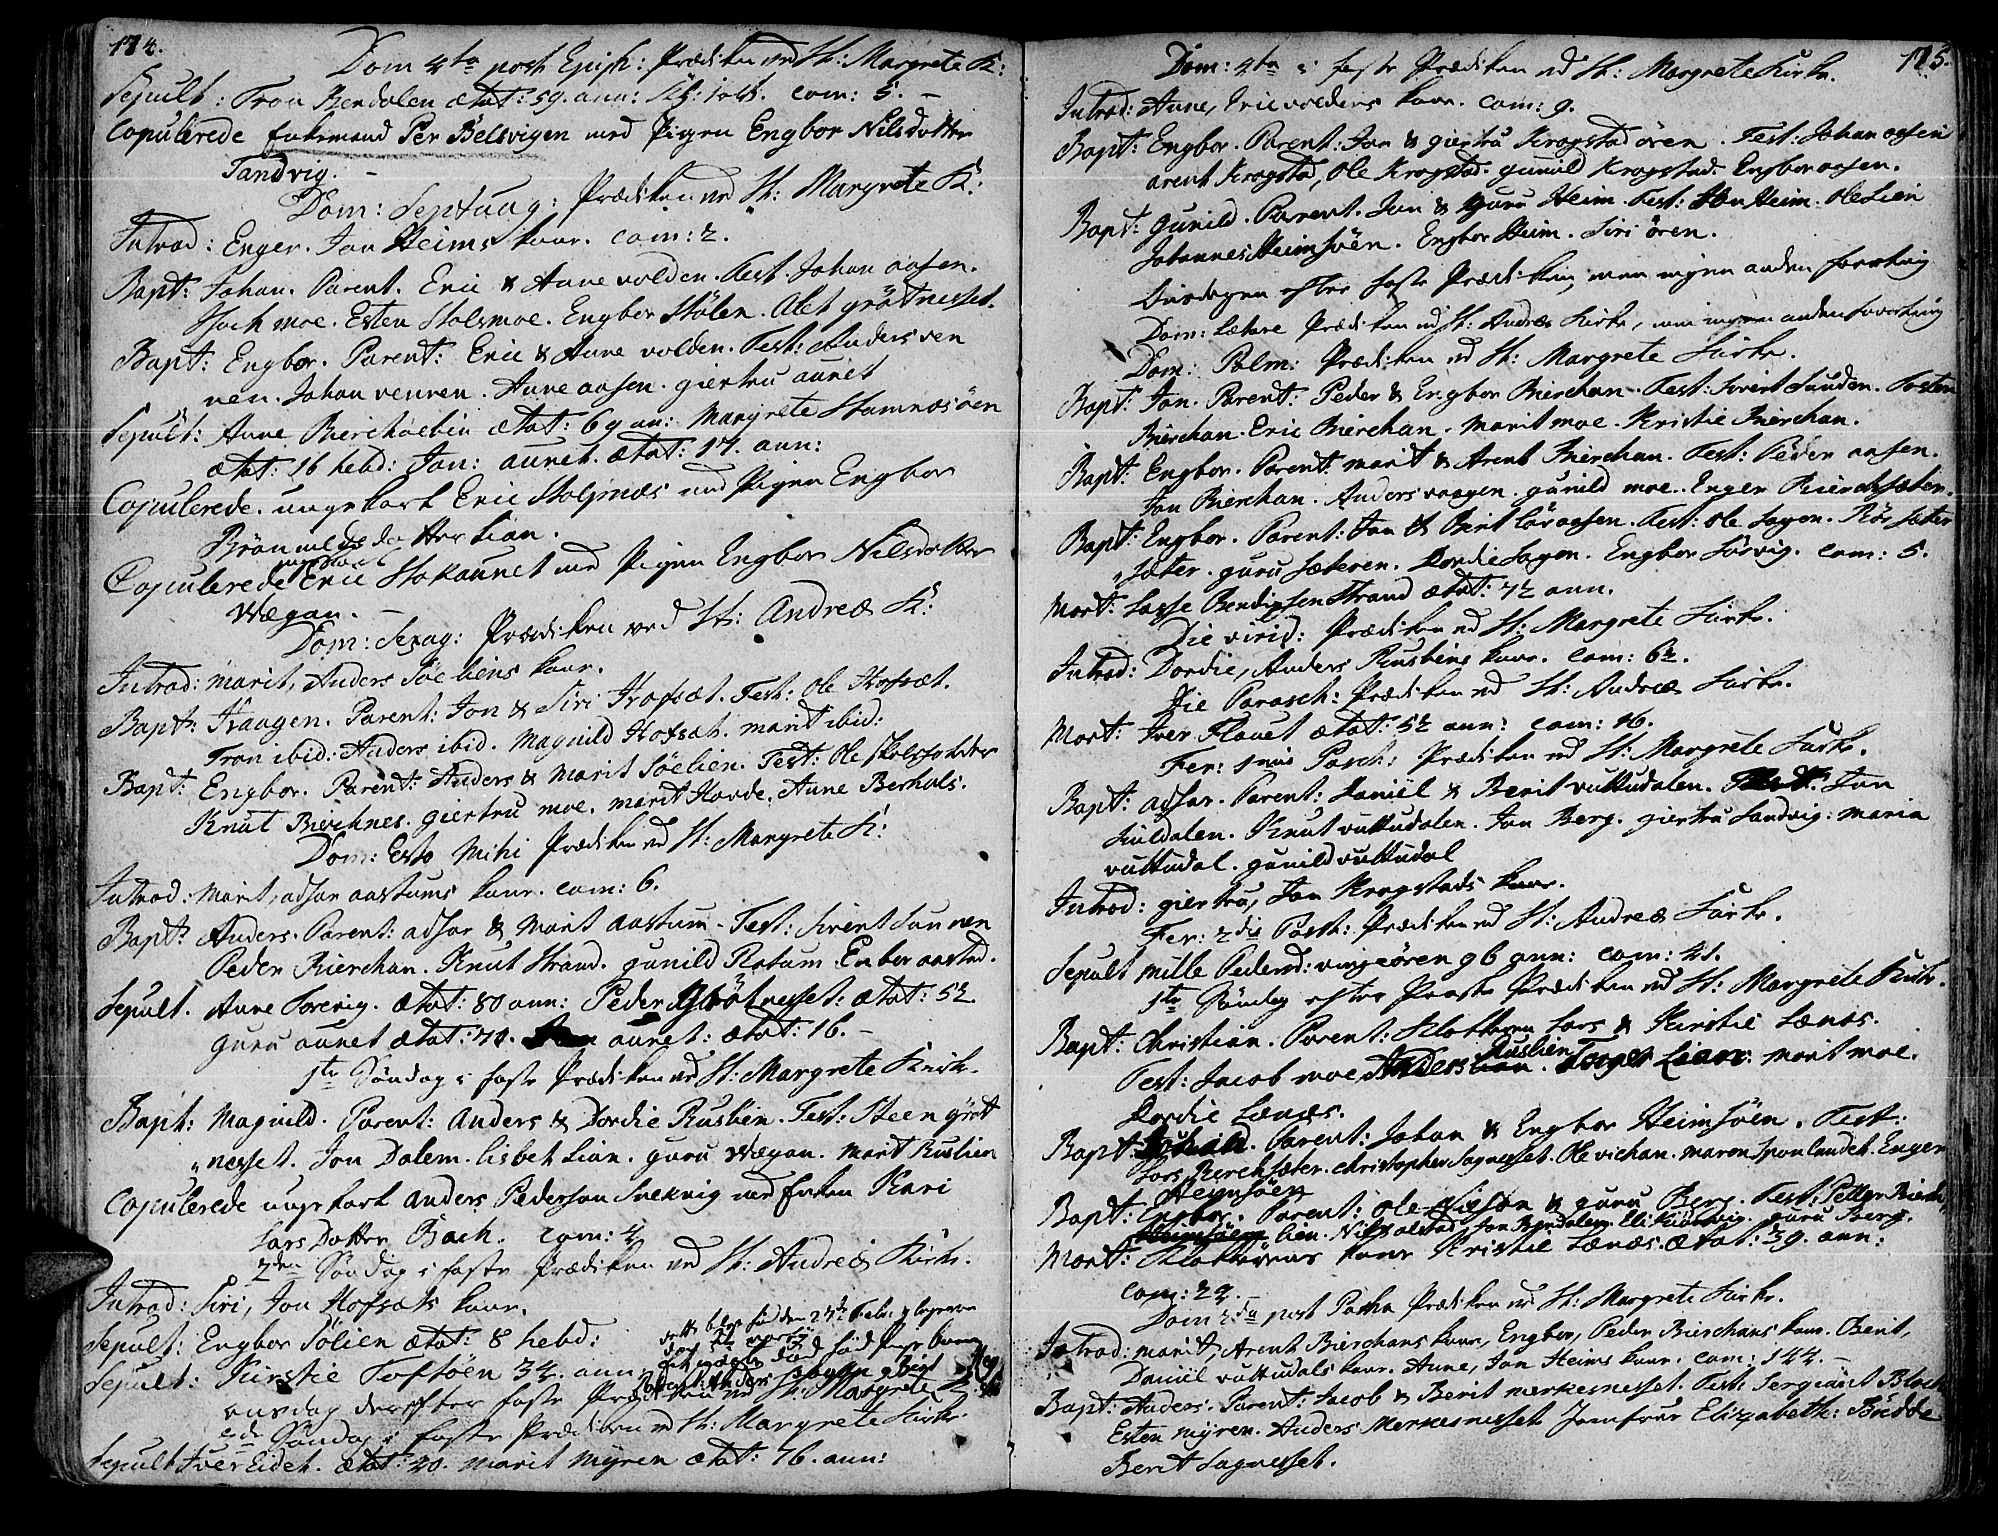 174.
Dom 4ta post Epiph: Prædiken ved St: Margrete K:
Sepult: Tron Bendalen ætat: 59. ann: com: 5. –
Copulerede Enkemand Per Belsvigen med Pigen Engbor Nilsdotter
Tandvig. –
Dom: Septuag: Prædiken ved St: Margrete K:
Introd: Enger. Jon Heims kone. com: 2.
Bapt: Johan. Parent. Eric & Anne volden. Test. Johan aasen.
moe. Esten Stolsmoe. Engbor Stölen. Olet grötnesset.
Bapt: Engbor. Parent: Eric & Anne volden. Test: Anders ven
ven. Johan venven. Anne aasen. giertru aunet
Sepult: Anne Bierchaebin ætat: 69 an: Margrete Hamnesöen
ætat: 16 hebd: Jon: aunet. ætat: 17. ann:
Copulerede. ungekarl Eric med Pigen Engbor
Brönnelds datter Lian.
Copulerede ungekarl Eric Hokaunet med Pigen Engbor Nilsdotter
Wægan. –
Dom: Sexag: Prædiken ved St: Andreæ K:
Introd: marit, Anders Söeliens kone.
Bapt: Haagen. Parent: Jon & Siri Hofsæt. Test: Ole Hofsæt.
Tron ibid: Anders ibid. Magnild Hofsæt. marit ibid:
Bapt: Engbor. Parent: Anders & Marit Söelien. Test: Ole
Knut Bierchnes. giertru moe. marit Hovde. Anne Berhols.
Dom: Esto Mihi Prædiken ved St: Margrete K:
Introd: Marit, adsar aastums kone. com: 6.
Bapt: Anders. Parent: adsar & Marit aastum. Test: Sivert Sunnen
Peder Bierchan. Knut Strand. gunild Rotum. Enbor aastad.
Sepult. Anne Forevig. ætat: 80 ann: Peder Grötnesset: ætat: 52
guru aunet ætat: 70. aunet: ætat: 16. –
1te Söndag i faste Prædiken ved St: Margrete Kirke.
Bapt: Magnild. Parent: Anders & Dordie Ruslien. Test: Steen gröt
nesset. Jon Dalem. lisbet Lian. guru Wægan. Marit Ruslien
Copulerede ungekarl Anders Pederson Snekvig med Enken Kari
Lars Dotter Bach. com: 4
2den Söndag i faste Prædiken ved St: Andreæ Kirke.
Introd: Siri, Jon Hofsæts kone.
Sepult: Engbor Sölien ætat: 8 hebd:
Sepult: Kirstie Toftöen 34. ann
onsdag derefter faste Prædiken ved St: Margrete K:
Söndag i faste Prædiken ved St: Margrete Kirke.
Sepult Iver Eidet. ætat: 20. marit myren ætat: 76. ann:
175.
Dom: 4ta i faste Prædiken ved St: Margrete Kirke.
Introd: Anne, Eric voldens kone. com: 9.
Bapt: Engbor. Parent: Jon & giertru Krogstadören. Test: Johan aasen
arent Krogstad, Ole Krogstad. gunild Krogstad. Engbor aasen.
Bapt: gunild. Parent. Jon & guru Heim. Test: Jon Heim. Ole Lien
Johannes Heimsöen. Engbor Heim. Siri ören.
Tirsdagen efter faste Prædiken, men ingen anden forretning
Dom: Lætare Prædiken ved St: Andreæ Kirke, men ingen anden forretning
Dom: Palm: Prædiken ved St: Margrete Kirke.
Bapt: Jon. Parent: Peder & Engbor Bierchan. Test: Sivert Sunden. Tosten
Bierchan. Eric Bierchan. Marit moe. Kristie Bierchan.
Bapt: Engbor. Parent: marit & Arent Bierchan. Test: Peder aasen.
Jon Bierchan. Anders vaagen. gunild moe. Enger Bierchsæter.
Bapt: Engbor. Parent: Jon & Berit Löraasen. Test: Ole Sagen.
sæter. guru sæteren. Dordie Sagen. Engbor Sörvig. com: 5.
Mort: Lasse Bendigsen Strand ætat: 72 ann.
Die virid: Prædiken ved St: Margrete Kirke.
Introd: Dordie, Anders Ruslins kone. com: 62.
Die Parasch: Prædiken ved St: Andreæ Kirke.
Mort: Iver Flauet ætat: 52 ann: com: 16.
Fer: 1mæ Pasch: Prædiken ved St: Margrete Kirke.
Bapt: adsar. Parent: Daniil & Berit vuttudalen. Test: Jon
Kuldalen. Knut vuttudalen. Jon Berg. giertru Sandvig: maria
vuttudal. gunild vuttudal
Introd: giertru, Jon Krogstads kone.
Fer: 2dæ Pasch: Prædiken ved St: Andreæ Kirke.
Sepult mille Pedersd: vinjeören 96 ann: com: 41.
1te Söndag efter Paaske Prædiken ved St: Margrete Kirke.
Bapt: Christian. Parent: Klokkeren Lars & Kirstie Lænæs.
Test: Jacob moe Anders Ruslien. Torger Lian: marit moe.
Dordie Lænæs.
Bapt: Johan. Parent: Johan & Engbor Heimsöen. Test:
Lars Berchsæter. Christopher Sagnesset. Ole vichan. maren Sponlundet. Enger
Heimsöen
Bapt: Engbor. Parent: Ole Nielson & guru Berg. Test: Petter
lien. Nils Jon Bendalen. guru Berg.
Mort: Klokkerens kone Kristie Lænæs. ætat: 39. ann:
com: 22.
Dom 2da post Pascha Prædiken ved St: Margrete Kirke.
Introd: marit, Arent Bierchans kone, Engbor, Peder Bierchans kone. Berit,
Daniil vuttudals kone. Anne, Jon Heims kone. com: 144. –
Bapt: Anders. Parent: Jacob & Berit merkesnesset. Test: Sergeant Block
Esten myren. Anders Merkesnesset Jomfrue Elizabeth: Budde
Berit Sagnesset.